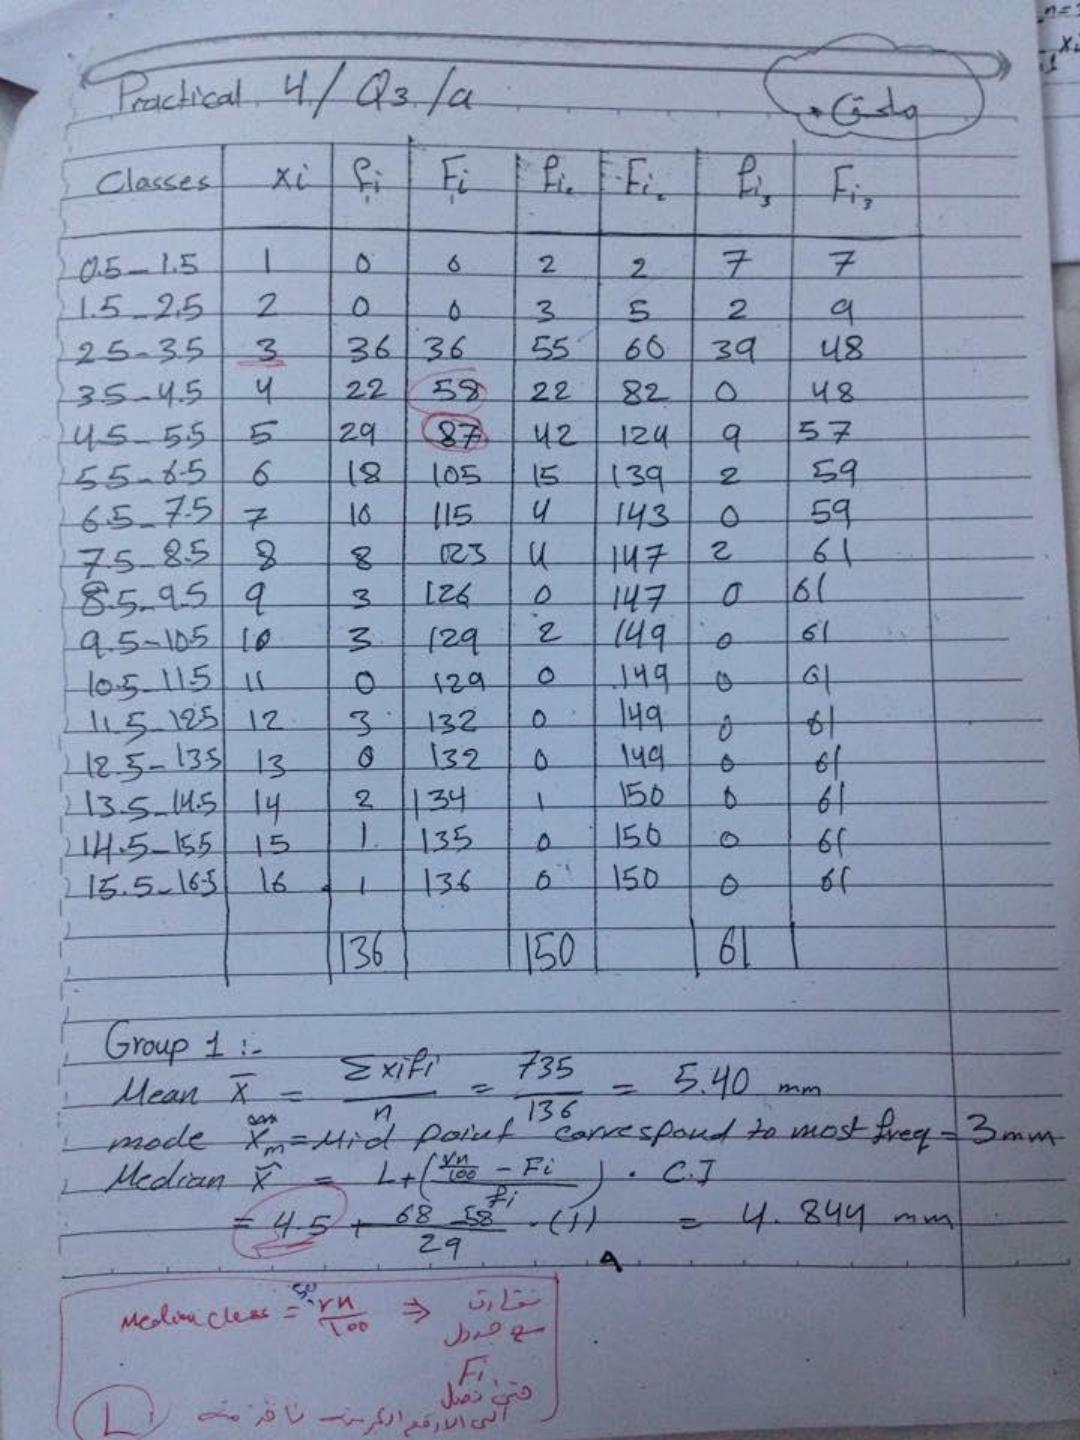 n=
Xi
Practical 4/ Q3/a
ملحق
Classes xi fi₁ Fi₁ fi₂ Fi₂ fi₃ Fi₃
0.5-1.5 1 0 0 2 2 7 7
1.5-2.5 2 0 0 3 5 2 9
2.5-3.5 3 36 36 55 60 39 48
3.5-4.5 4 22 58 22 82 0 48
4.5-5.5 5 29 87 42 124 9 57
5.5-6.5 6 18 105 15 139 2 59
6.5-7.5 7 10 115 4 143 0 59
7.5-8.5 8 8 123 4 147 2 61
8.5-9.5 9 3 126 0 147 0 61
9.5-10.5 10 3 129 2 149 0 61
10.5-11.5 11 0 129 0 149 0 61
11.5-12.5 12 3 132 0 149 0 61
12.5-13.5 13 0 132 0 149 0 61
13.5-14.5 14 2 134 1 150 0 61
14.5-15.5 15 1 135 0 150 0 61
15.5-16.5 16 1 136 0 150 0 61
136 150 61
Group 1 :-
Mean x̄ = Σxifi / n = 735 / 136 = 5.40 mm
mode x̂m = Mid point correspond to most freq = 3mm
Median x̃ = L+(rn/100 - Fi / fi) . C.I
= 4.5 + 68-58 / 29 . (1) = 4.844 mm
Median class = rn/100 ⇒ نقارن
مع جدول
Fi
حتى نصل
الى الارقم منه
L